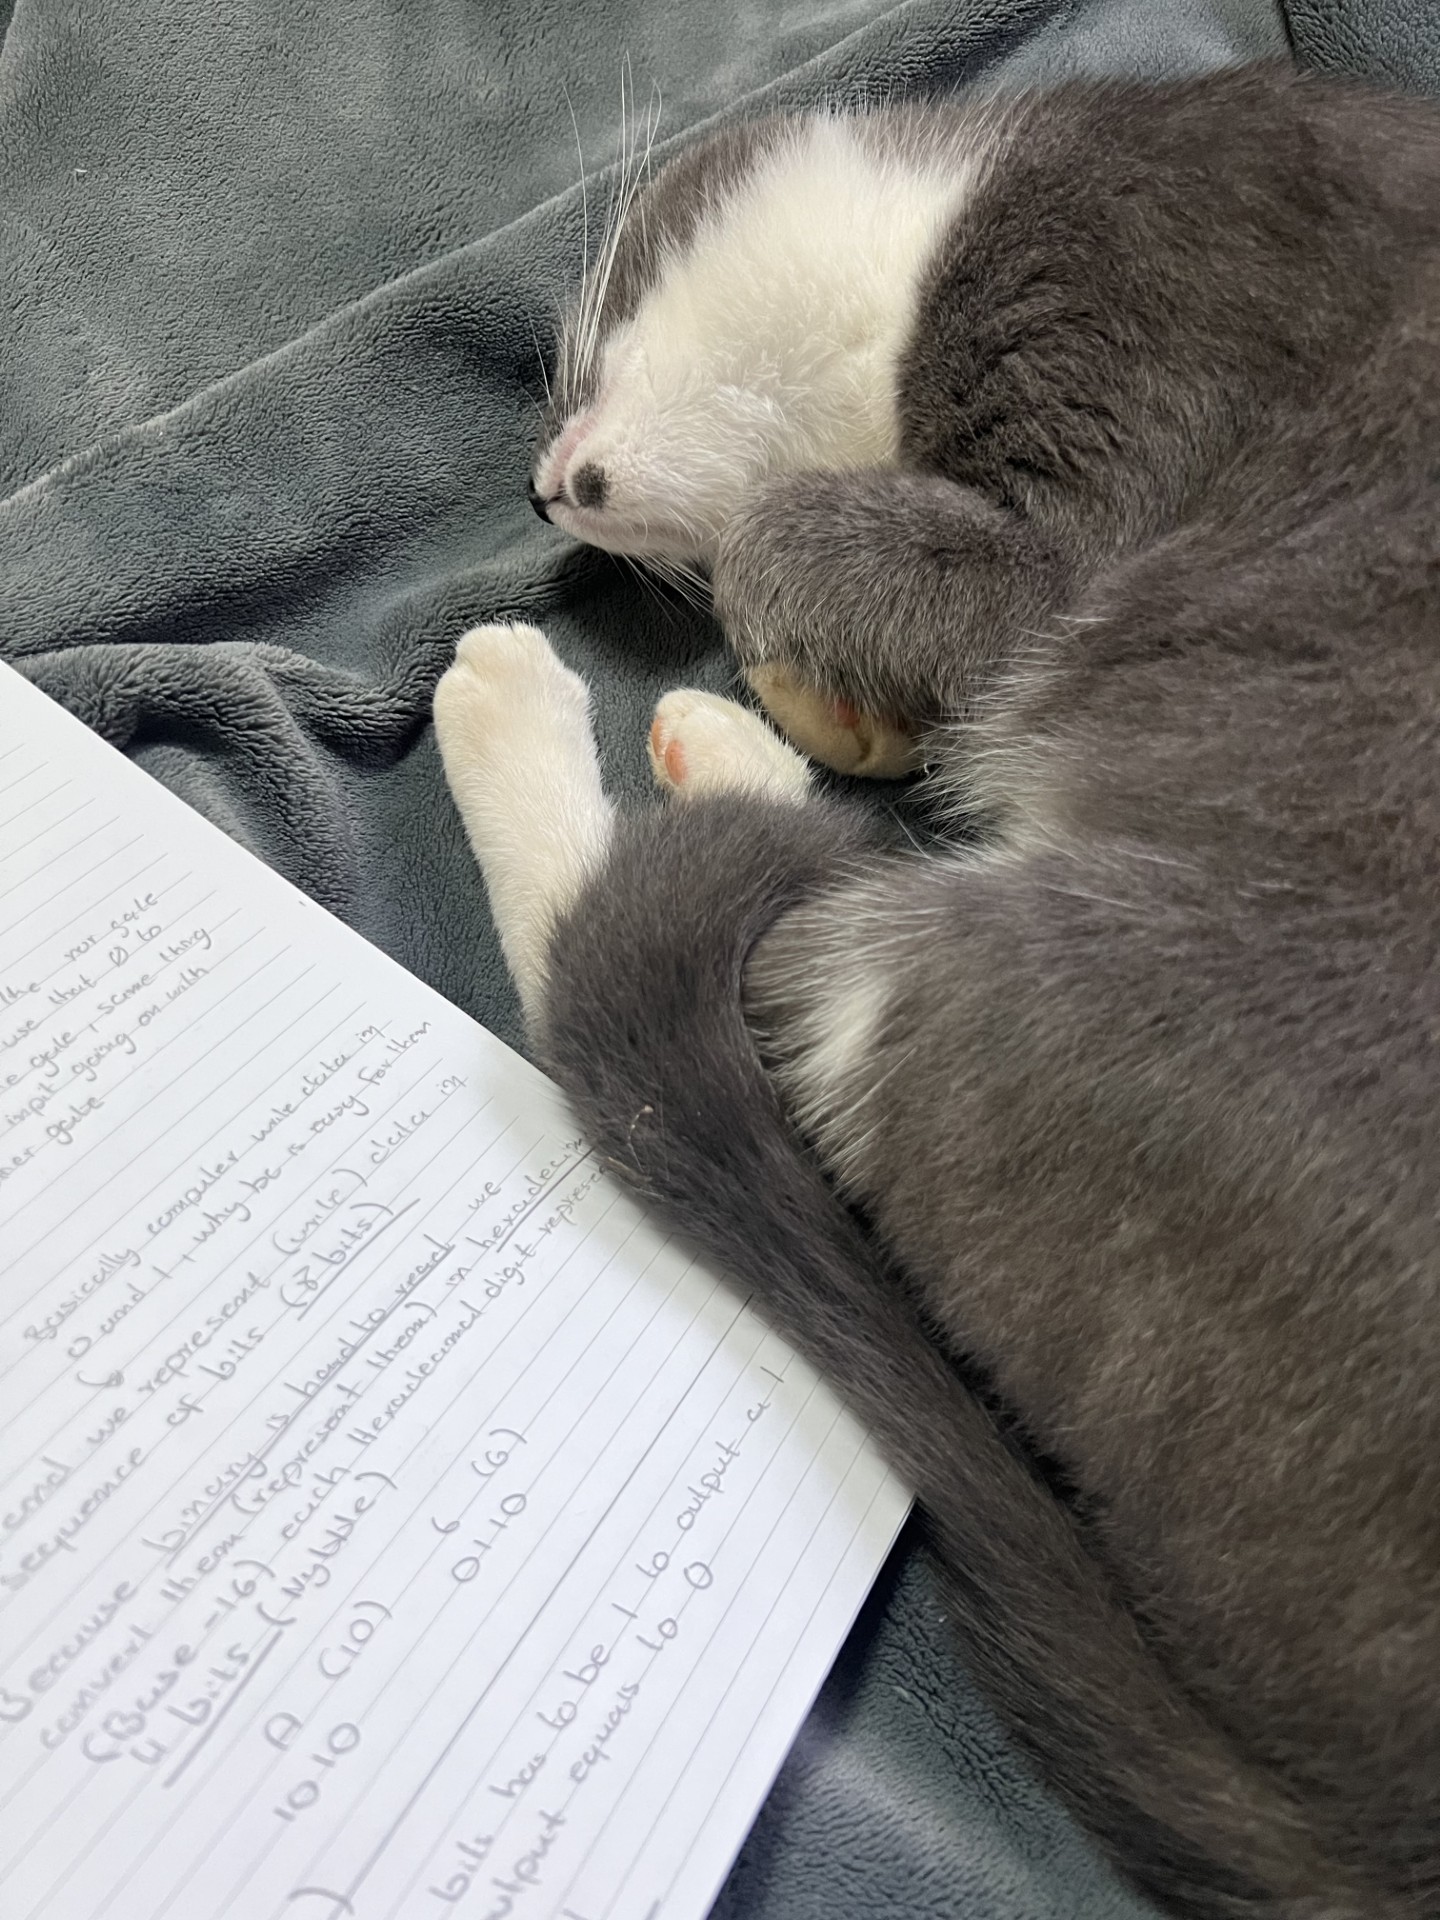 the nor gate
use that 0 to
e gate, same thing
input going on with
her gate
Basically computer write data in
0 and 1, why bc is easy for them
and we represent (write) data in
sequence of bits (8 bits)
Because binary is hard to read we
convert them (represent them) in hexadecim
(Base-16) each Hexadecimal digit represe
4 bits (Nybble)
A (10) 6 (6)
1010 0110
bits has to be 1 to output a 1
output equas to 0